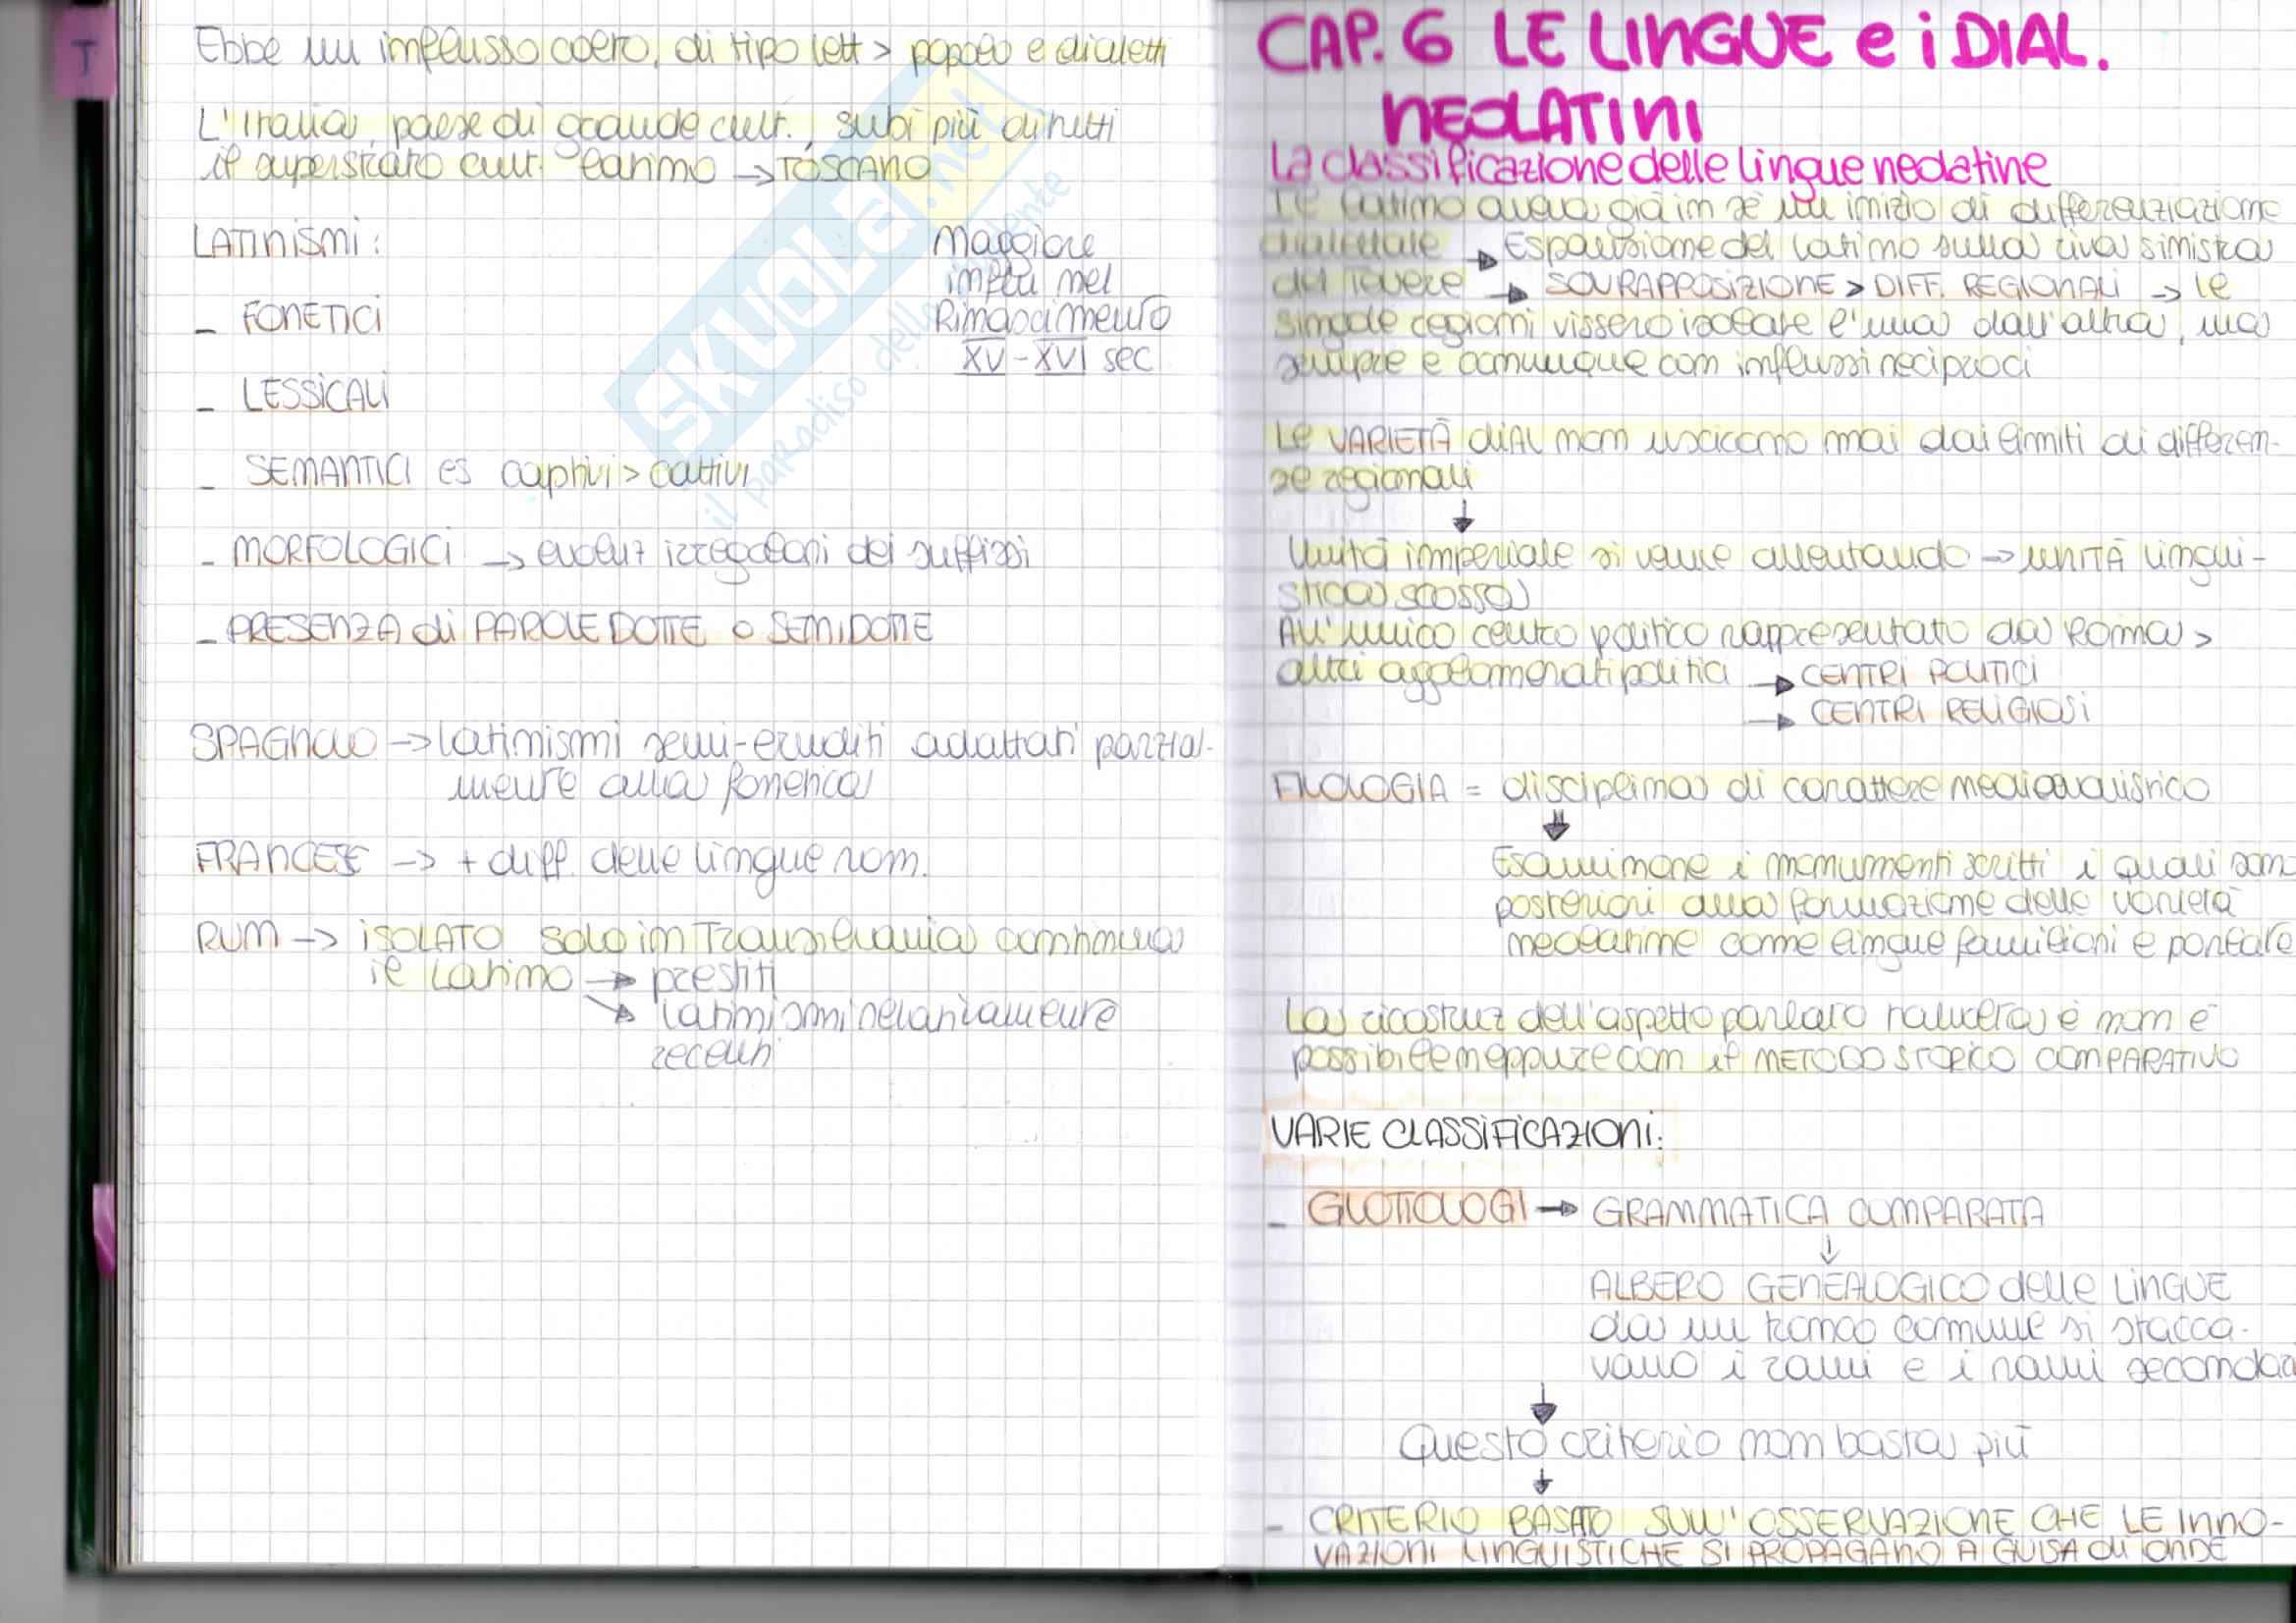 Ebbe un influsso colto, di tipo lett > popolo e dialetti
L'Italia, paese di grande cult., subì più di tutti
il superstrato cult. latino → TOSCANO
LATINISMI:
Maggiore
influ nel
Rinascimento
XV - XVI sec
- FONETICI
- LESSICALI
- SEMANTICI es captivi > cattivi
- MORFOLOGICI → evoluz irregolari dei suffissi
- PRESENZA di PAROLE DOTTE o SEMIDOTTE
SPAGNOLO → latinismi semi-eruditi adattati parzial-
mente alla fonetica
FRANCESE → + diff. delle lingue rom.
RUM → ISOLATO solo in Transilvania continua
il latino → prestiti
→ latinismi relativamente
recenti
SKUOLA.net
il paradiso dello studente
CAP. 6 LE LINGUE e i DIAL.
NEOLATINI
La classificazione delle lingue neolatine
Il latino aveva già in sé un inizio di differenziazione
dialettale → Espansione del latino sulla riva sinistra
del Tevere → SOVRAPPOSIZIONE > DIFF. REGIONALI → le
singole regioni vissero isolate l'una dall'altra, ma
sempre e comunque con influssi reciproci
Le VARIETÀ diAL non uscirono mai dai limiti di differen-
ze regionali
↓
Unità imperiale si venne allentando → UNITÀ Lingui-
stica scossa
All'unico centro politico rappresentato da Roma >
altri agglomerati politici → CENTRI POLITICI
→ CENTRI RELIGIOSI
FILOLOGIA = disciplina di carattere medioevalistico
↓
Esaminare i monumenti scritti i quali sono
posteriori alla formazione delle varietà
neolatine come lingue famigliari e parlate
La ricostruz dell'aspetto parlato talvolta è non è
possibile neppure con il METODO STORICO COMPARATIVO
VARIE CLASSIFICAZIONI:
- GLOTTOLOGI → GRAMMATICA COMPARATA
↓
ALBERO GENEALOGICO delle LINGUE
da un tronco comune si stacca-
vano i rami e i rami secondari
↓
Questo criterio non basta più
↓
- CRITERIO BASATO SULL'OSSERVAZIONE CHE LE INNO-
VAZIONI LINGUISTICHE SI PROPAGANO A GUISA di ONDE
T